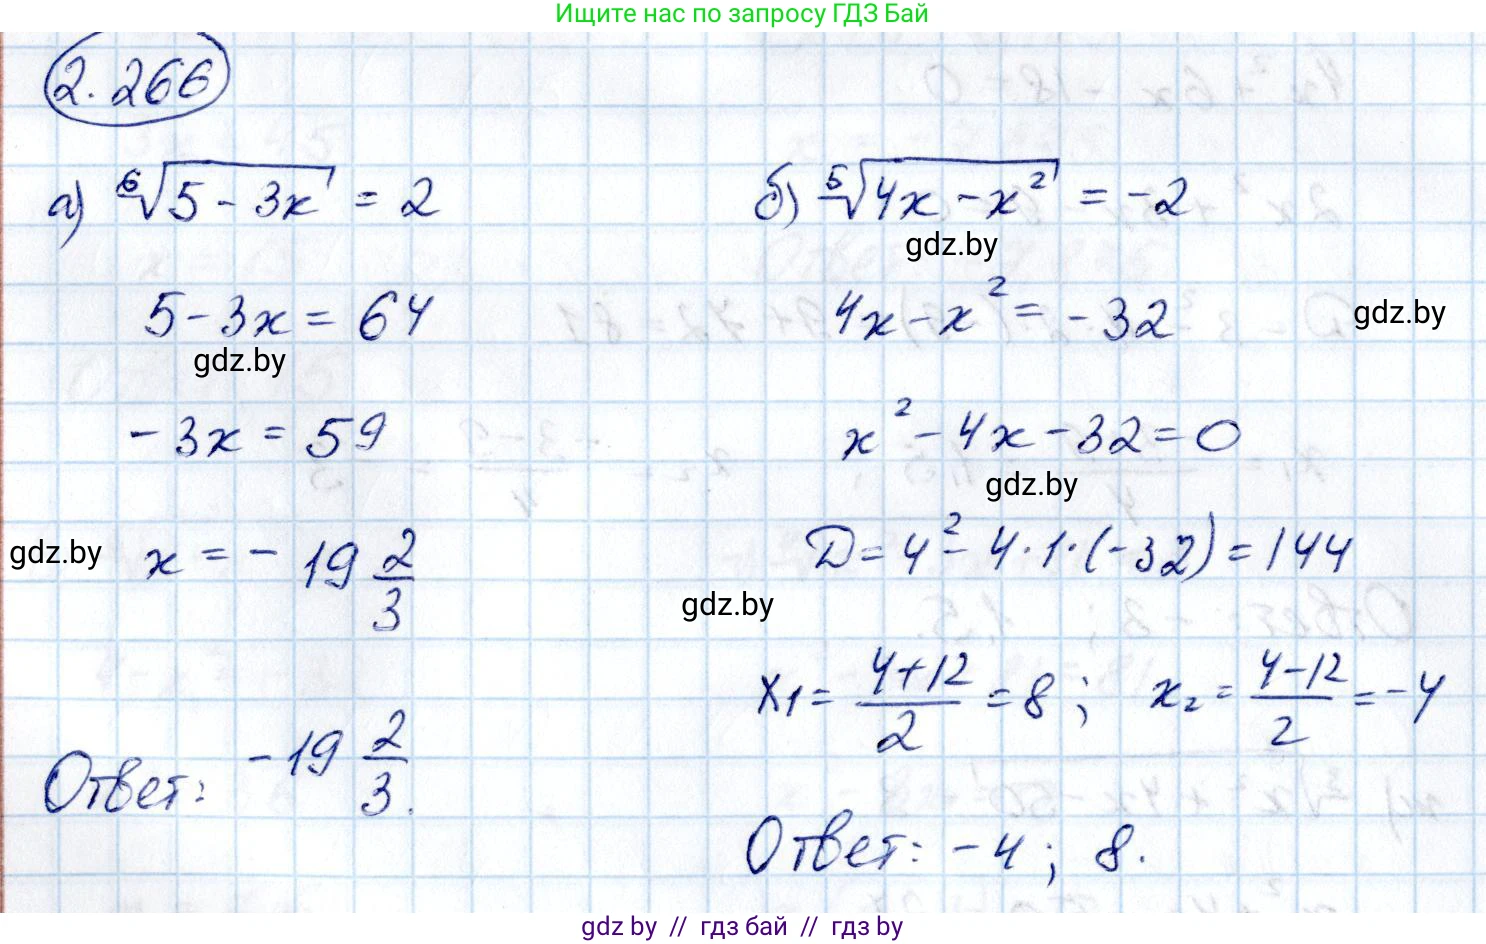 Ищите нас по запросу ГДЗ Бай
2.266
а) ⁶√(5 - 3x) = 2
5 - 3x = 64
gdz.by
-3x = 59
gdz.by
x = -19 2/3
Ответ: -19 2/3.
б) ⁵√(4x - x²) = -2
gdz.by
4x - x² = -32
gdz.by
x² - 4x - 32 = 0
gdz.by
D = 4² - 4·1·(-32) = 144
gdz.by
x₁ = (4+12)/2 = 8; x₂ = (4-12)/2 = -4
Ответ: -4; 8.
gdz.by // гдз бай // гдз.by